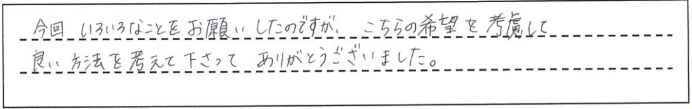 今回 いろいろなことをお願いしたのですが、こちらの希望を考慮して
良い方法を考えて下さって ありがとうございました。